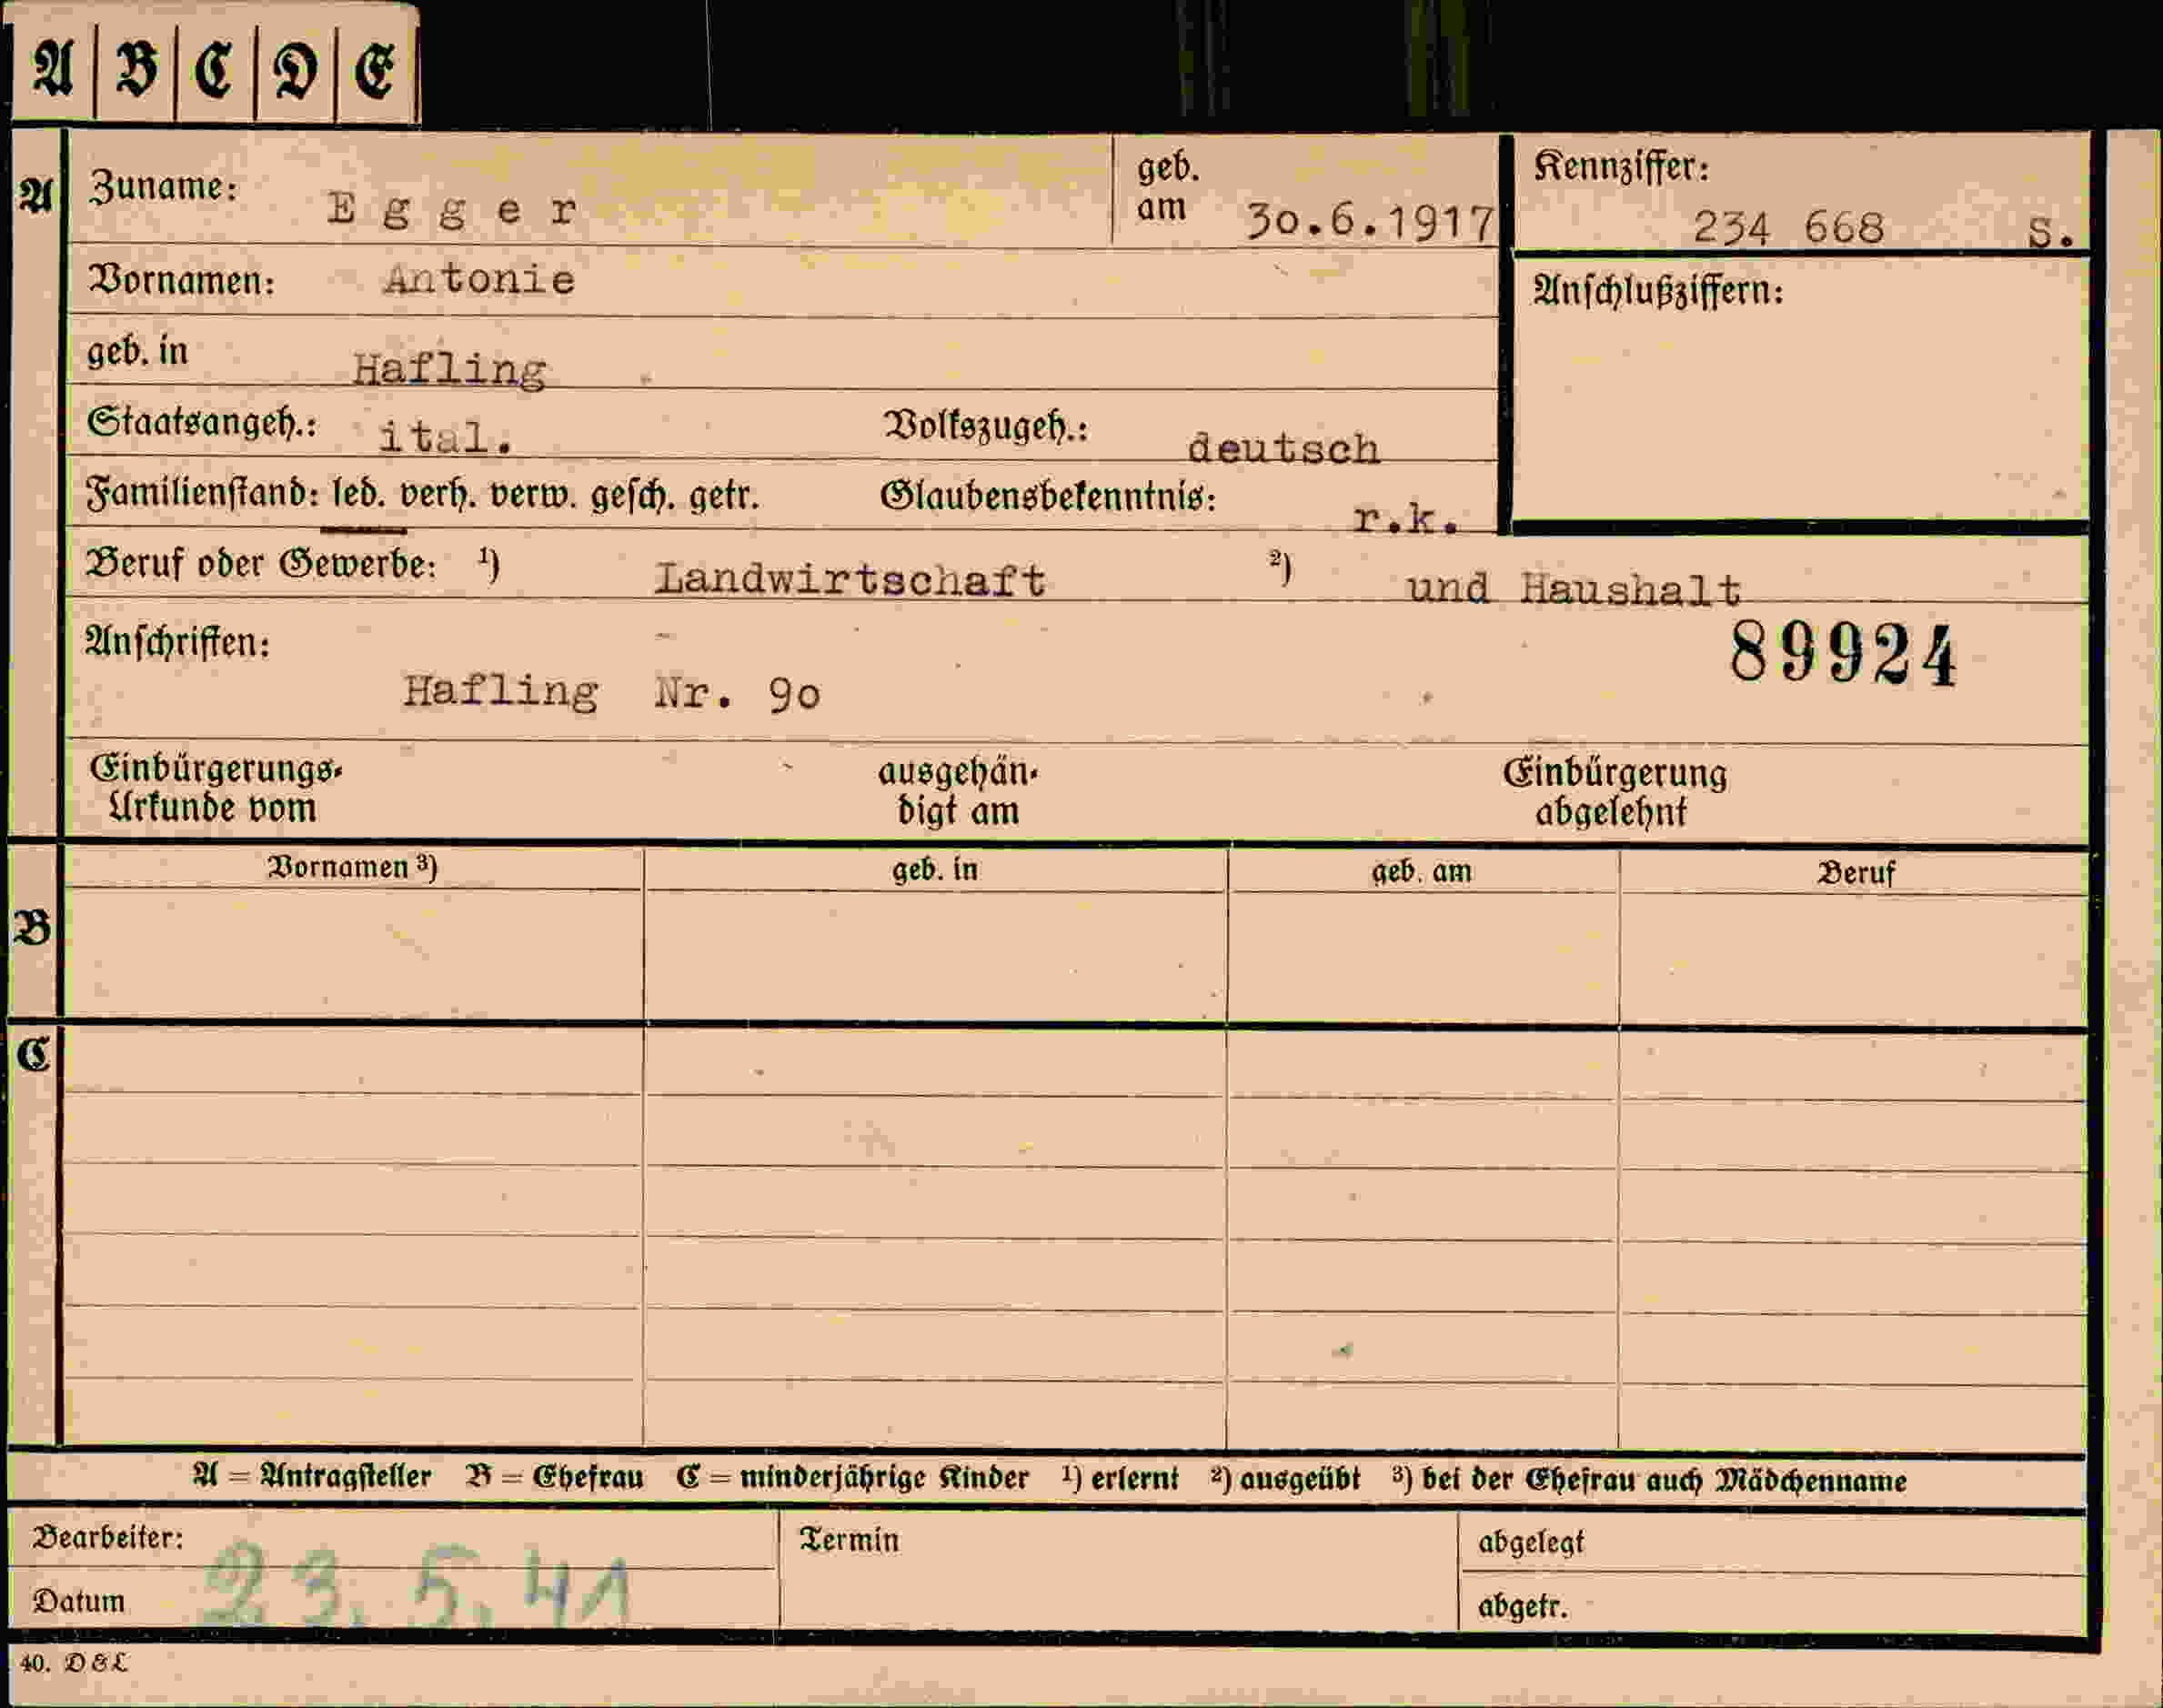 A B C D E
A Zuname: Egger geb. am 30.6.1917 Kennziffer: 234 668 S.
Vornamen: Antonie Anschlußziffern:
geb. in Hafling
Staatsangeh.: ital. Volkszugeh.: deutsch
Familienstand: led. verh. verw. gesch. getr. Glaubensbekenntnis: r.k.
Beruf oder Gewerbe: ¹) Landwirtschaft ²) und Haushalt
Anschriften: 89924
Hafling Nr. 90
Einbürgerungs- ausgehän- Einbürgerung
Urkunde vom digt am abgelehnt
Vornamen ³) geb. in geb. am Beruf
B
C
A = Antragsteller B = Ehefrau C = minderjährige Kinder ¹) erlernt ²) ausgeübt ³) bei der Ehefrau auch Mädchenname
Bearbeiter: Termin abgelegt
Datum 23.5.41 abgetr.
40. D & L